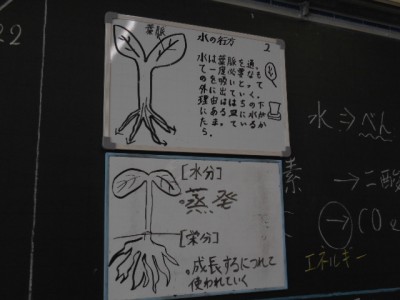 22
葉脈
水の行方 2
水は葉脈を通っ
て一度必要なも
のを吸いとって
外に出ていく。
理由ははちの下
にある皿に水がた
たまっているか
ら。
[水分]
蒸発
[栄分]
。成長するにつれて
使われていく
水⇒べん
素 →二酸
→CO
エネルギー